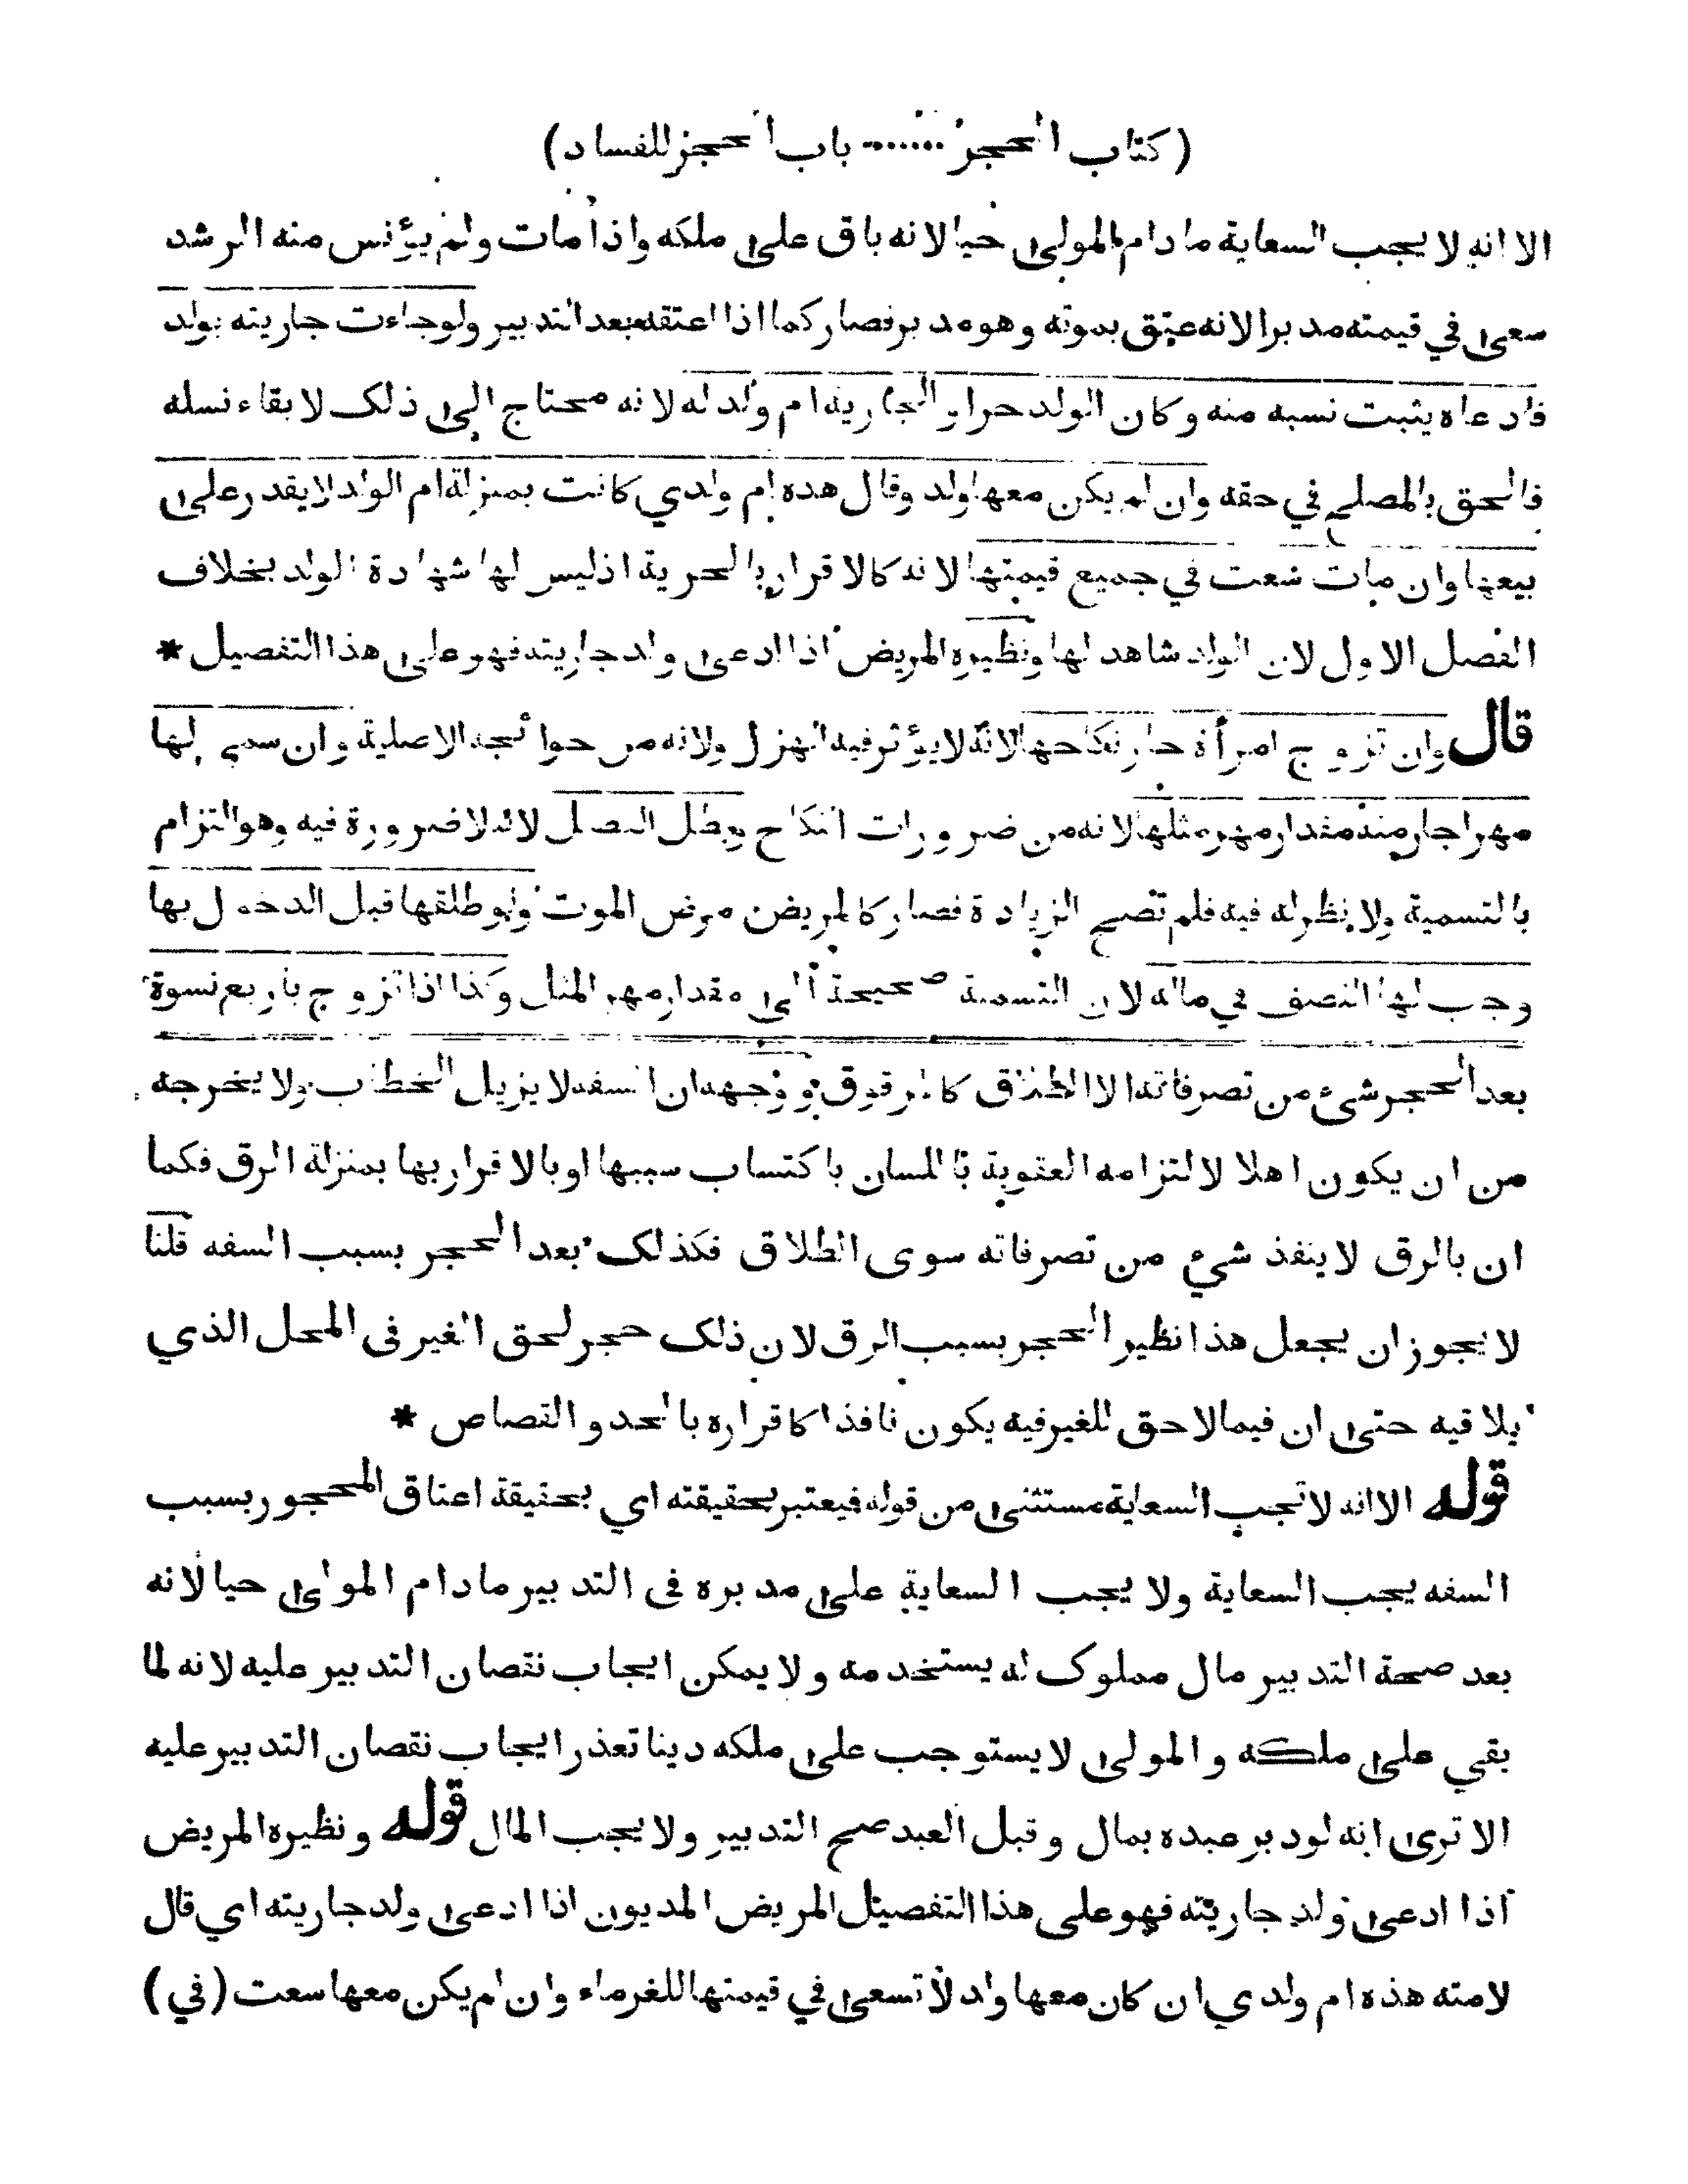 (كتاب الحجر ...... باب الحجر للفساد)
الا انه لا يجب السعاية ما دام المولى حيا لانه باق على ملكه واذا مات ولم يؤنس منه الرشد
سعى في قيمته مدبرا لانه عتق بموته وهو مدبر فصار كما اذا اعتقه بعد التدبير ولو جاءت جاريته بولد
فادعاه يثبت نسبه منه وكان الولد حرا والجارية ام ولد له لانه محتاج الى ذلك لابقاء نسله
فالحق بالمصلح في حقه وان لم يكن معها ولد وقال هذه ام ولدي كانت بمنزلة ام الولد لا يقدر على
بيعها وان مات سعت في جميع قيمتها لانه كالاقرار بالحرية اذ ليس لها شهادة الولد بخلاف
الفصل الاول لان الولد شاهد لها ونظيره المريض اذا ادعى ولد جاريته فهو على هذا التفصيل *
قال وان تزوج امرأة جاز نكاحها لانه لا يؤثر فيه الهزل ولانه من حوائجه الاصلية وان سمى لها
مهرا جاز منه مقدار مهر مثلها لانه من ضرورات النكاح وبطل الفضل لانه لا ضرورة فيه وهو التزام
بالتسمية ولا نظر له فيه فلم تصح الزيادة فصار كالمريض مرض الموت ولو طلقها قبل الدخول بها
وجب لها النصف في ماله لان التسمية صحيحة الى مقدار مهر المثل وكذا اذا تزوج باربع نسوة
بعد الحجر شيء من تصرفاته الا الطلاق كالمرقوق ووجهه ان السفه لا يزيل الخطاب ولا يخرجه
من ان يكون اهلا لالتزامه العقوبة باللسان باكتساب سببها او بالاقرار بها بمنزلة الرق فكما
ان بالرق لا ينفذ شيء من تصرفاته سوى الطلاق فكذلك بعد الحجر بسبب السفه قلنا
لا يجوز ان يجعل هذا نظير الحجر بسبب الرق لان ذلك حجر لحق الغير في المحل الذي
يلاقيه حتى ان فيما لا حق للغير فيه يكون نافذا كاقراره بالحد والقصاص *
قوله الا انه لا تجب السعاية مستثنى من قوله فيعتبر بحقيقته اي بحقيقة اعتاق المحجور بسبب
السفه يجب السعاية ولا يجب السعاية على مدبره في التدبير ما دام المولى حيا لانه
بعد صحة التدبير مال مملوك له يستخدمه ولا يمكن ايجاب نقصان التدبير عليه لانه لما
بقي على ملكه والمولى لا يستوجب على ملكه دينا تعذر ايجاب نقصان التدبير عليه
الا ترى انه لو دبر عبده بمال وقبل العبد صح التدبير ولا يجب المال قوله ونظيره المريض
اذا ادعى ولد جاريته فهو على هذا التفصيل المريض المديون اذا ادعى ولد جاريته اي قال
لامته هذه ام ولدي ان كان معها ولد لا تسعى في قيمتها للغرماء وان لم يكن معها سعت (في)